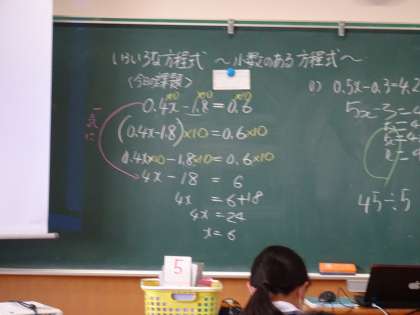 いろいろな方程式 〜小数のある方程式〜
〈今日の課題〉
×10 ×10 ×10
0.4x - 1.8 = 0.6
一気に
(0.4x-1.8)×10 = 0.6×10
0.4x×10 - 1.8×10 = 0.6×10
4x - 18 = 6
4x = 6+18
4x = 24
x = 6
0.5x-0.3=4.2
5x-3=4
45÷5
5